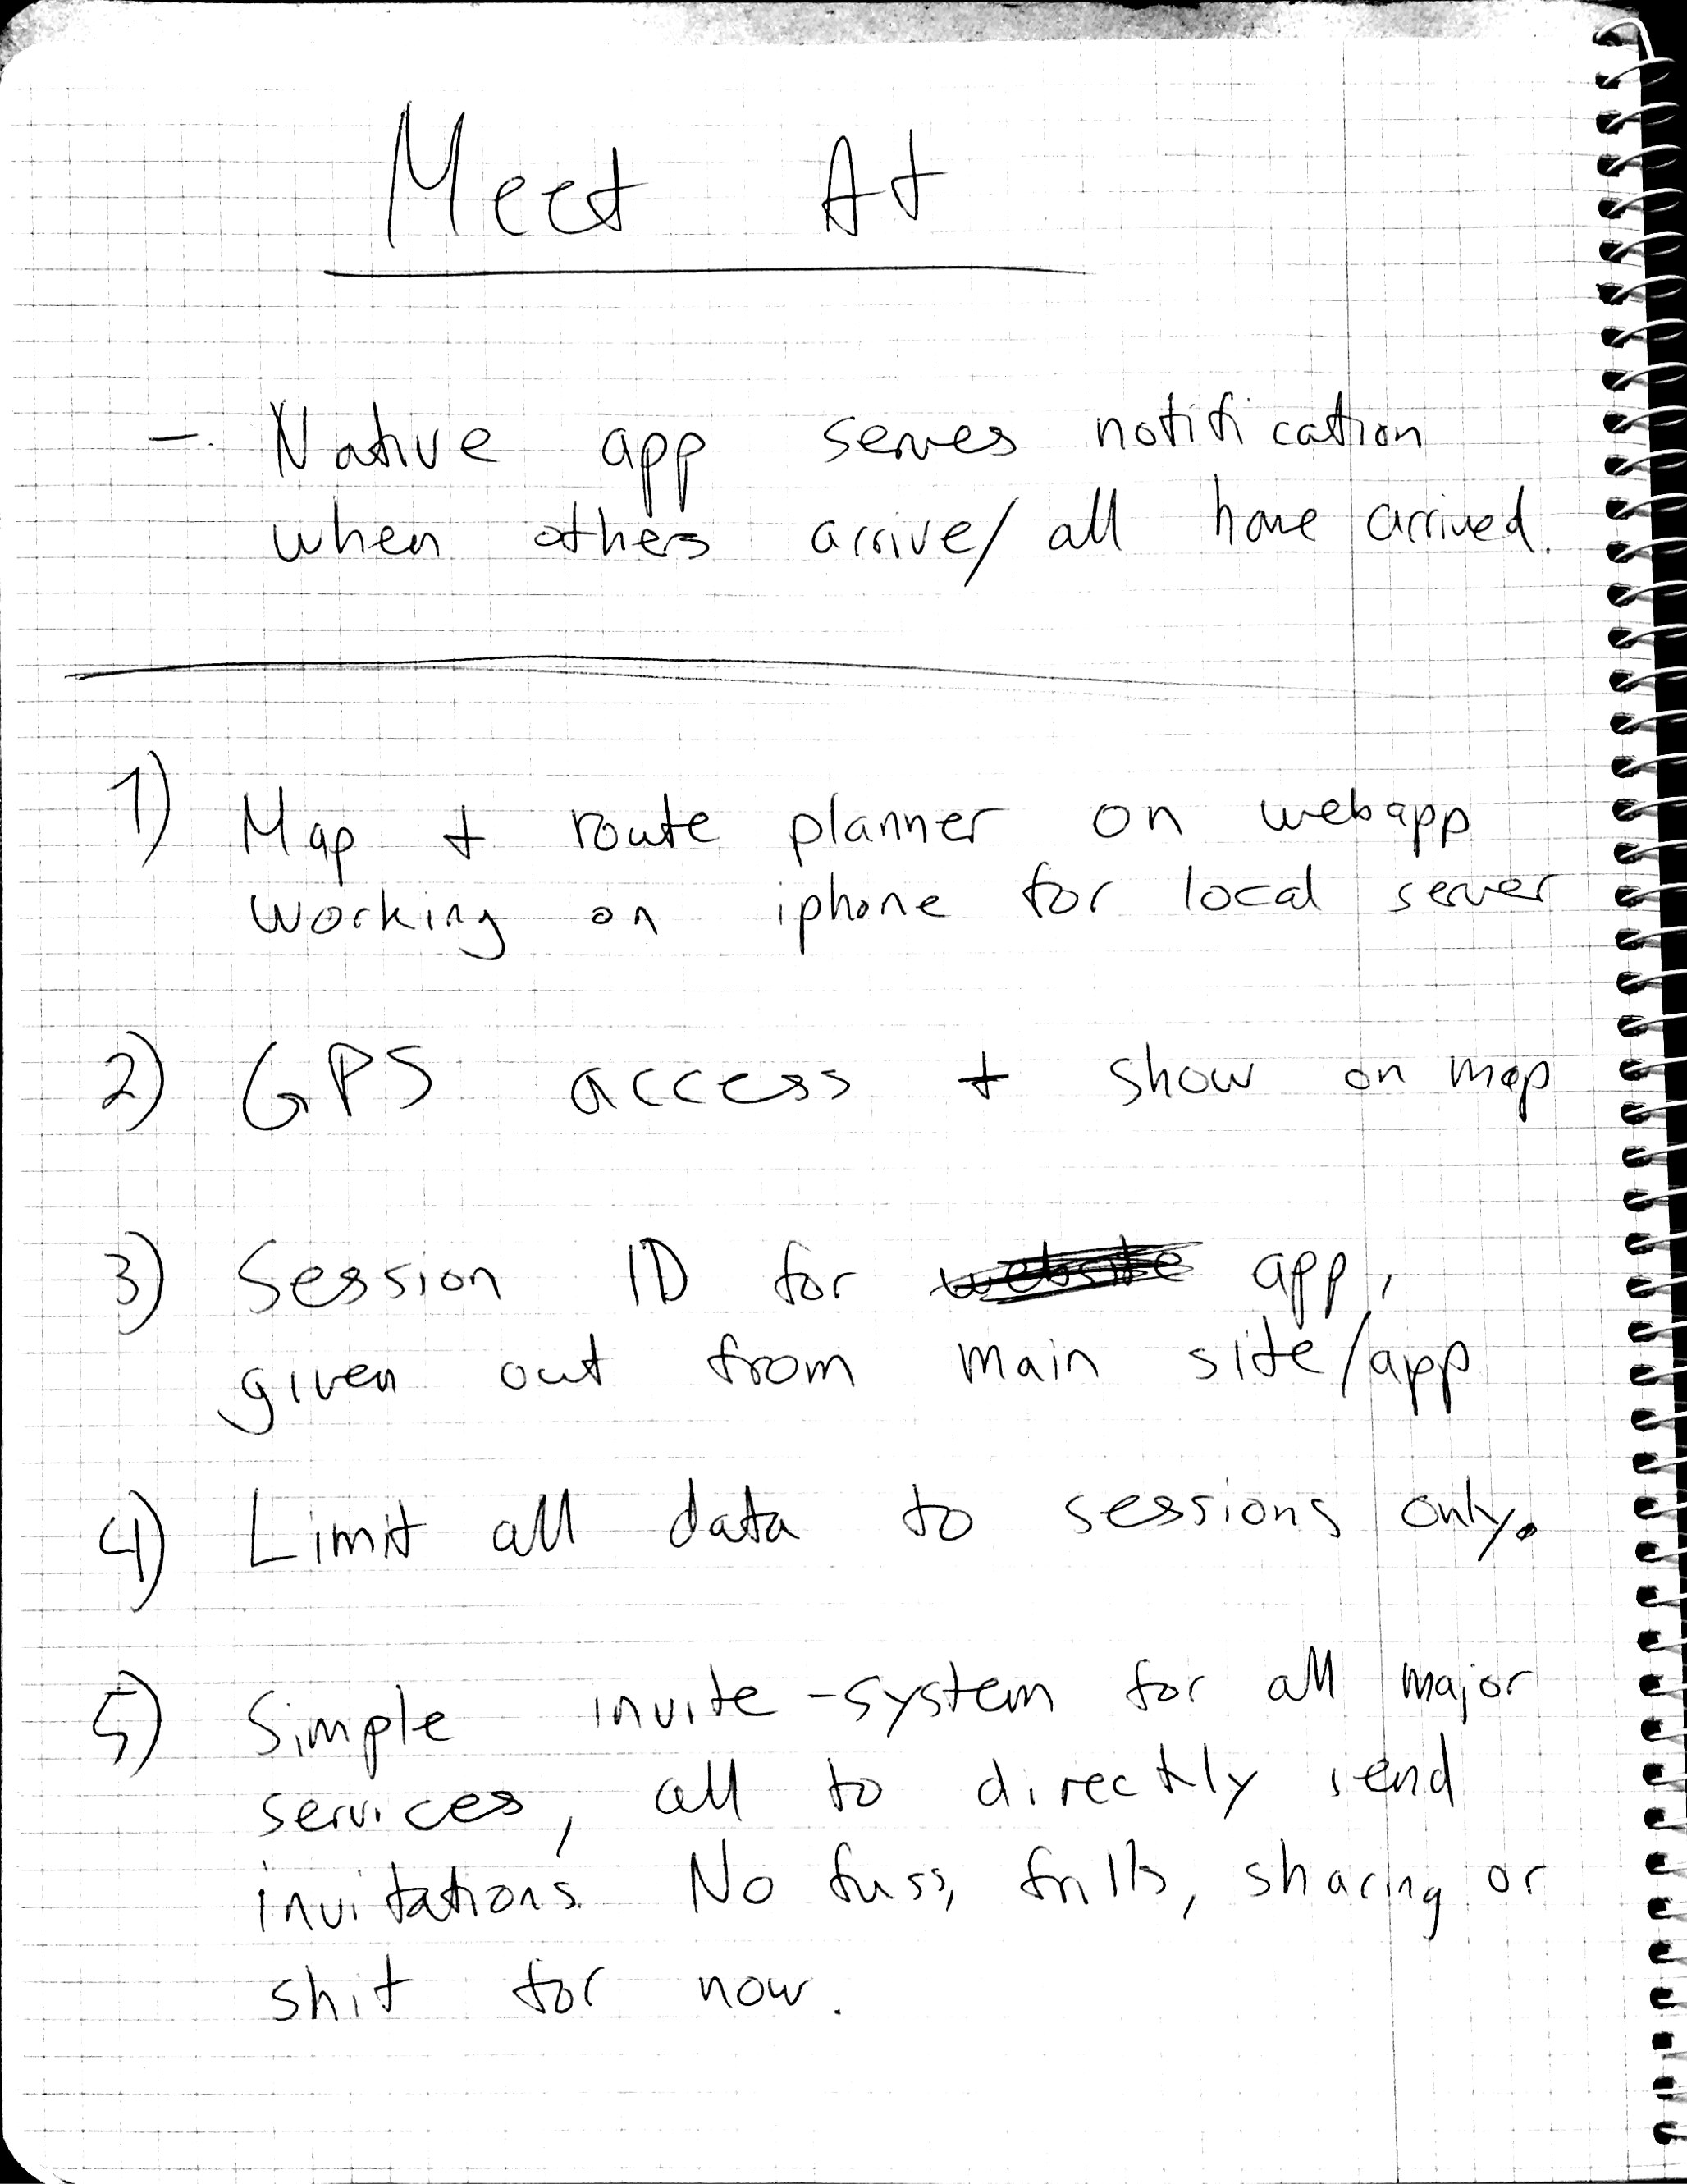 Meet At
- Native app serves notification
when others arrive/ all have arrived.
1) Map + route planner on webapp
working on iphone for local server
2) GPS access + show on map
3) Session ID for website app,
given out from main site/app
4) Limit all data to sessions only.
5) Simple invite-system for all major
services, all to directly send
invitations. No fuss, frills, sharing or
shit for now.